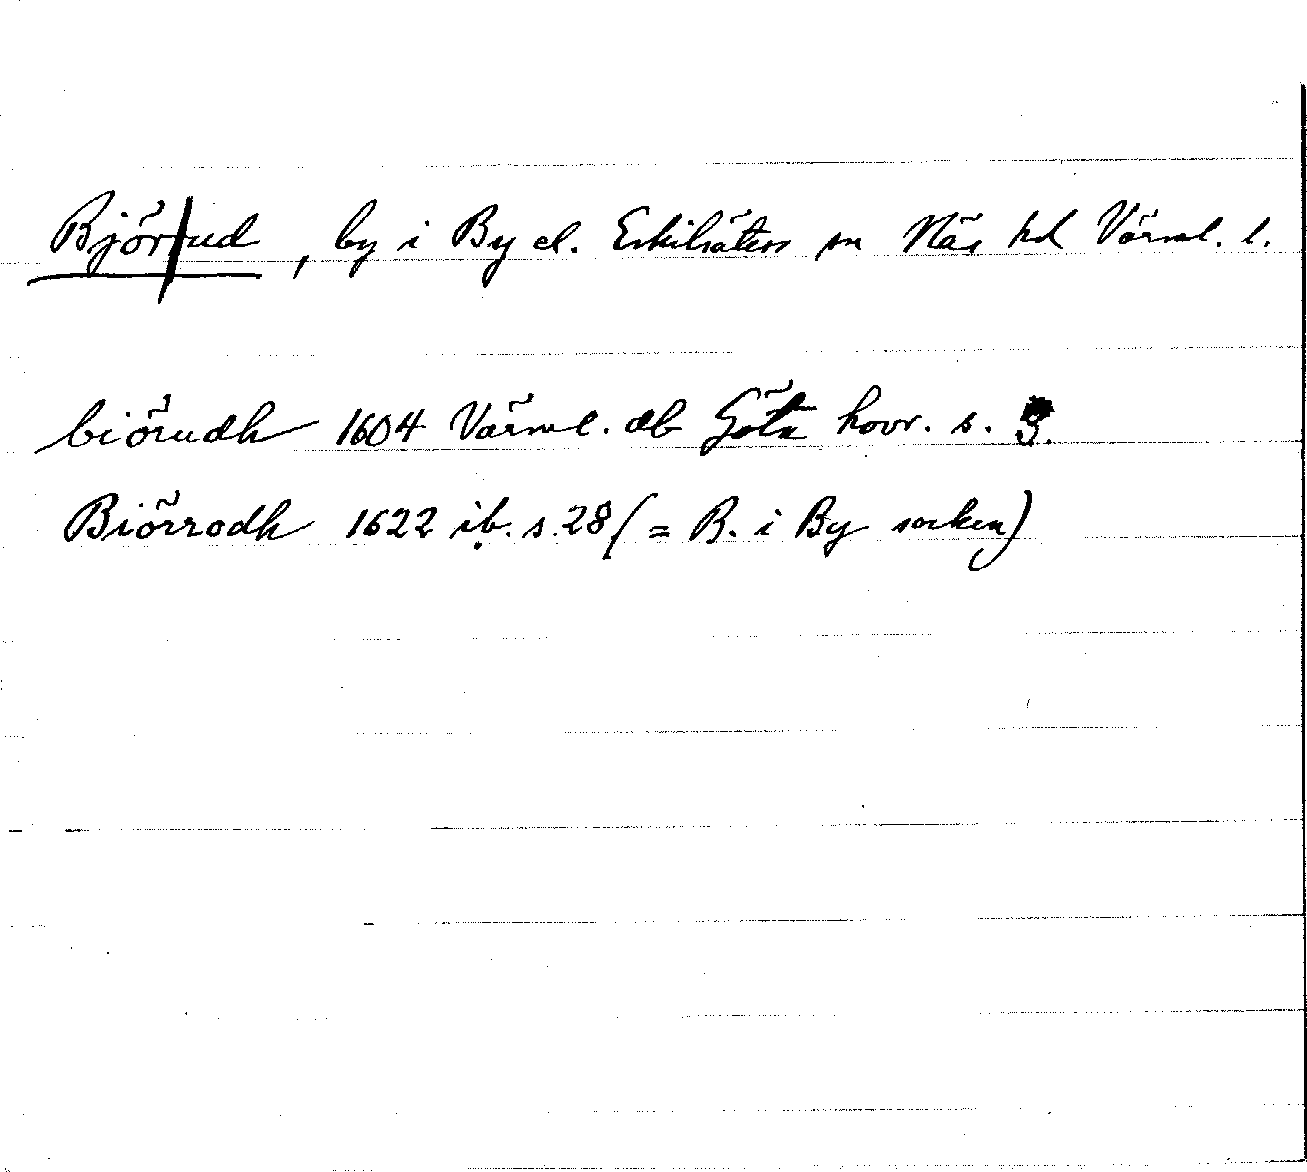 Björrud, by i By el. Eskilsäters sn Näs hd Värml. l.
biörudh 1604 Värml. db Göta hovr. s. 3.
Biörrodh 1622 ib. s. 28 (= B. i By socken)